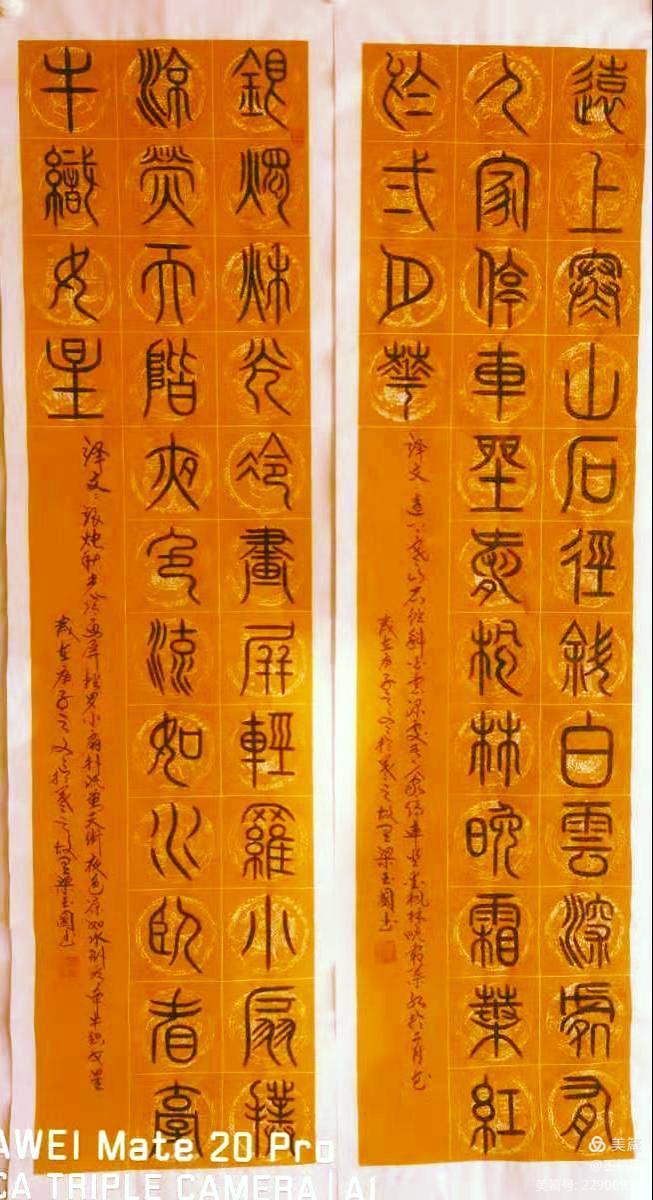 遠上寒山石徑斜白雲深處有
人家停車坐愛楓林晚霜葉紅
於弍月華
译文 远上寒山石径斜白云深处有人家停车坐爱枫林晚霜叶红于二月花
岁在庚子之冬於羲之故里梁玉國书
銀燭秋光冷畫屏輕羅小扇撲
涼熒天階夜色流如水臥看牽
牛織女星
译文 银烛秋光冷画屏轻罗小扇扑流萤天街夜色凉如水卧看牵牛织女星
岁在庚子之冬於羲之故里梁玉國书
AWEI Mate 20 Pro
CA TRIPLE CAMERA | AI
美篇